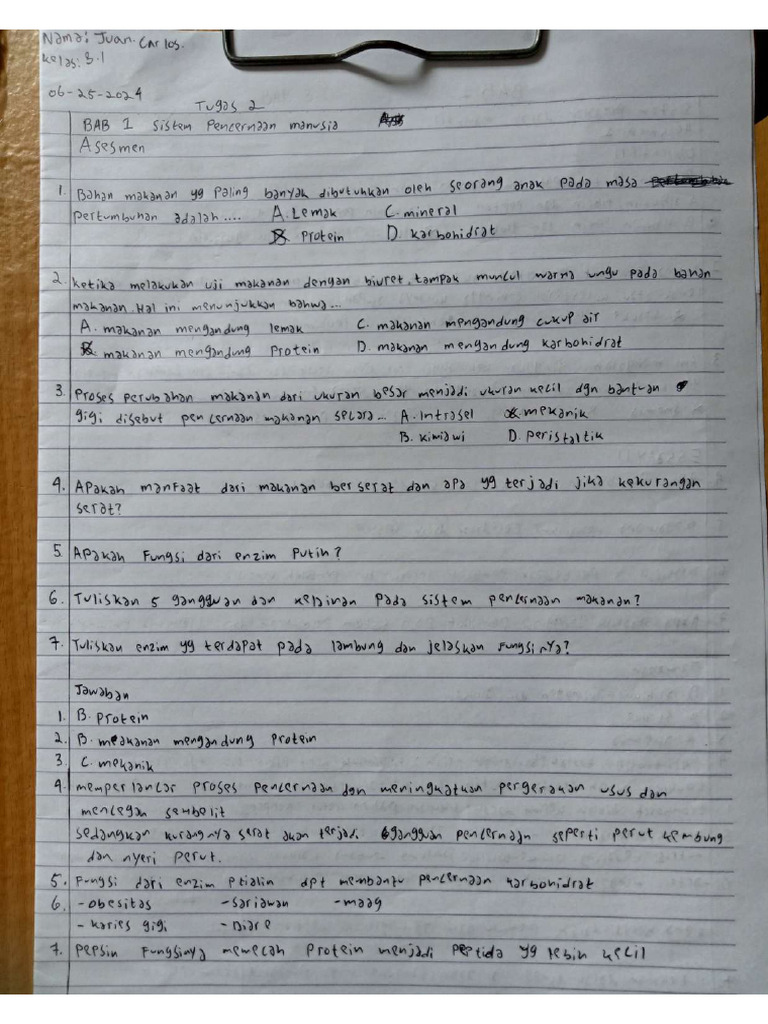 Nama: Juan. Carlos.
Kelas: 3.1
06-25-2024
Tugas 2
BAB 1 Sistem Pencernaan manusia
Asesmen
1. Bahan makanan yg paling banyak dibutuhkan oleh seorang anak pada masa
pertumbuhan adalah .... A. Lemak C. mineral
B. Protein D. karbohidrat
2. ketika melakukan uji makanan dengan biuret, tampak muncul warna ungu pada bahan
makanan. Hal ini menunjukkan bahwa...
A. makanan mengandung lemak C. makanan mengandung cukup air
B. makanan mengandung Protein D. makanan mengandung karbohidrat
3. Proses perubahan makanan dari ukuran besar menjadi ukuran kecil dgn bantuan
gigi disebut pencernaan makanan secara... A. Intrasel C. mekanik
B. kimiawi D. peristaltik
4. Apakah manfaat dari makanan berserat dan apa yg terjadi jika kekurangan
serat?
5. Apakah Fungsi dari enzim Putih?
6. Tuliskan 5 gangguan dan kelainan pada sistem pencernaan makanan?
7. Tuliskan enzim yg terdapat pada lambung dan jelaskan Fungsinya?
Jawaban
1. B. Protein
2. B. makanan mengandung Protein
3. C. mekanik
4. memperlancar proses pencernaan dan meningkatkan pergerakan usus dan
mencegah sembelit
sedangkan kurangnya serat akan terjadi gangguan pencernaan seperti perut kembung
dan nyeri perut.
5. Fungsi dari enzim Ptialin dpt membantu pencernaan karbohidrat
6. - obesitas - sariawan - maag
- karies gigi - Diare
7. Pepsin Fungsinya memecah Protein menjadi peptida yg lebih kecil